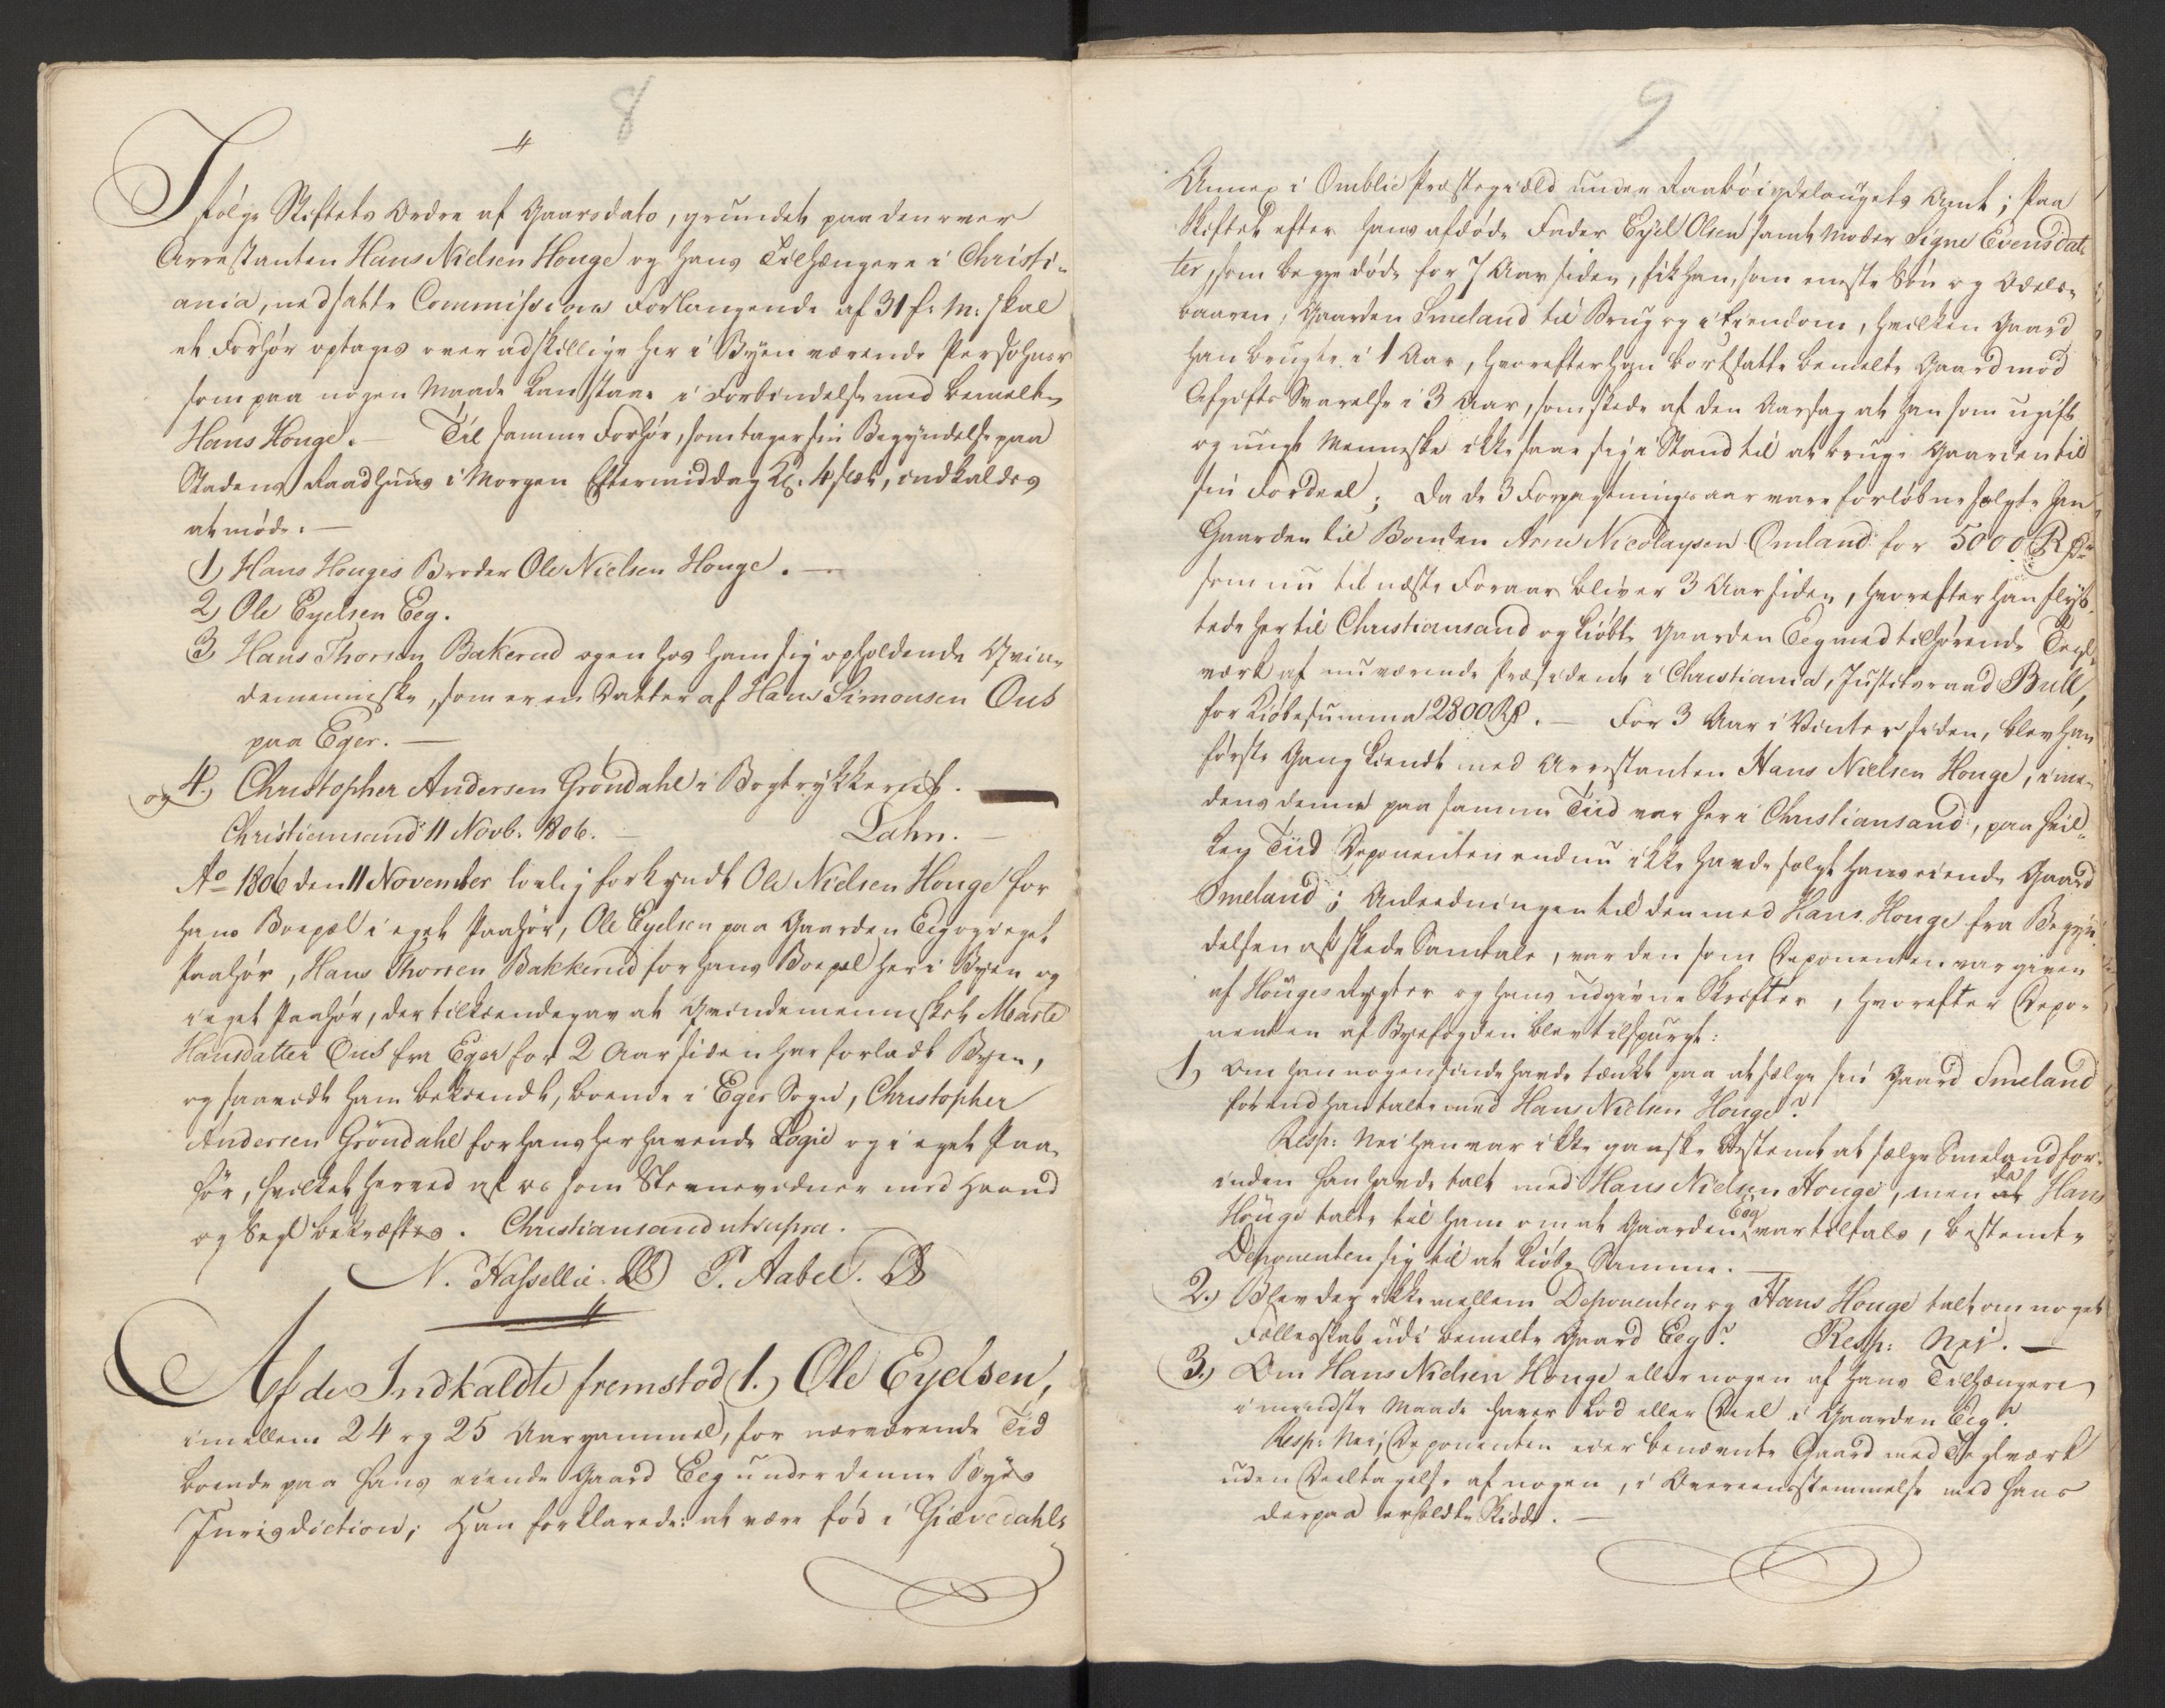 8
I følge Stiftets Ordre af Gaarsdato, grundet paa den over
Arrestanten Hans Nielsen Houge og hans Tilhængere i Christi-
ania, nedsatte Commissions Forlangende af 31 f: M: skal
et Forhør optages over adskillige her i Byen værende Persohner
som paa nogen Maade kan staae i Forbindelse med bemelte
Hans Houge. — Til samme Forhør, som tager sin Begyndelse paa
Stadens Raadhuus i Morgen Eftermiddag Kl: 4 slet, indkaldes
at møde. —
1) Hans Houges Broder Ole Nielsen Houge. —
2) Ole Eyelsen Eeg.
3) Hans Thorsen Bakerud og en hos ham sig opholdende Qvin-
demenniske, som er en Datter af Hans Simonsen Ous
paa Eger. —
og 4.) Christopher Andersen Grøndahl i Bogtrykkeriet. —
Christiansand 11 Novb. 1806. — Lahn. —
Ao 1806 den 11 November lovlig forkyndt Ole Nielsen Houge for
hans Boepæl i eget Paahør, Ole Eyelsen paa Gaarden Eeg og i eget
Paahør, Hans Thorsen Bakkerud for hans Boepæl her i Byen og
i eget Paahør, der tilkiendegav at Qvindemennisket Marte
Hansdatter Ous fra Eger for 2 Aar siden har forladt Byen,
og saavidt ham bekiendt, boende i Eger Sogn, Christopher
Andersen Grøndahl for hans her havende Logie og i eget Paa-
hør, hvilket herved af os som Stevnevidner med Haand
og Segl bekræftes. Christiansand ut supra. —
N. Hassellie. LS T. Aabel. LS
Af de Indkaldte fremstod 1.) Ole Eyelsen,
imellem 24 og 25 Aar gammel, for nærværende Tid
boende paa hans eiende Gaard Eeg under denne Byes
Jurisdiction; Han forklarede: at være fød i Giævedahls
9
Annex i Omblie Præstegiæld under Raabøigdelaugets Amt; Paa
Skiftet efter hans afdøde Fader Eyel Olsen samt Moder Signe Evensdat-
ter, som begge døde for 7 Aar siden, fik han, som eneste Søn og Odels-
baaren, Gaarden Smeland til Brug og i Eiendom, hvilken Gaard
han brugte i 1 Aar, hvorefter han bortsatte bemelte Gaard mod
Afgifts Svarelse i 3 Aar, som skede af den Aarsag at han som ugift
og ungt Menniske ikke saae sig i Stand til at bruge Gaarden til
sin Fordeel; Da de 3 Forpagtningsaar vare forløbne solgte han
Gaarden til Bonden Arne Nicolaysen Omland for 5000 Rd
som nu til næste Foraar bliver 3 Aar siden, hvorefter han flyt-
tede her til Christiansand og kiøbte Gaarden Eeg med tilhørende Tegl-
værk af nuværende Præsident i Christiania, Justitsraad Bull,
for Kiøbesumma 2800 Rd. — For 3 Aar i Vinter siden, blev han
første Gang kiendt med Arrestanten Hans Nielsen Houge, ime-
dens denne paa samme Tiid var her i Christiansand, paa hvil-
ken Tiid Deponenten endnu ikke havde solgt hans eiende Gaard
Smeland; Anledningen til den med Hans Houge fra Begyn-
delsen af skede Samtale, var den som Deponenten var given
af Houges Rygter og hans udgivne Skrifter, hvorefter Depo-
nenten af Byefogden blev tilspurgt:
1) Om han nogensinde havde tænkt paa at sælge sin Gaard Smeland
førend han talte med Hans Nielsen Houge?
Resp: Nei han var ikke ganske bestemt at sælge Smeland for-
inden han havde talt med Hans Nielsen Houge, men da Hans
Houge talte til ham om at Gaarden Eeg var tilfals, bestemte
Deponenten sig til at kiøbe Samme. —
2.) Blev der ikke mellem Deponenten og Hans Houge talt om noget
Fælleskab udi bemelte Gaard Eeg? Resp: Nei. —
3.) Om Hans Nielsen Houge eller nogen af hans Tilhængere
i mindste Maade haver Lod eller Deel i Gaarden Eeg?
Resp: Nei; Deponenten eier benævnte Gaard med Teglværk
uden Deeltagelse af nogen, i Overeensstemmelse med hans
derpaa erholdte Skiøde. —